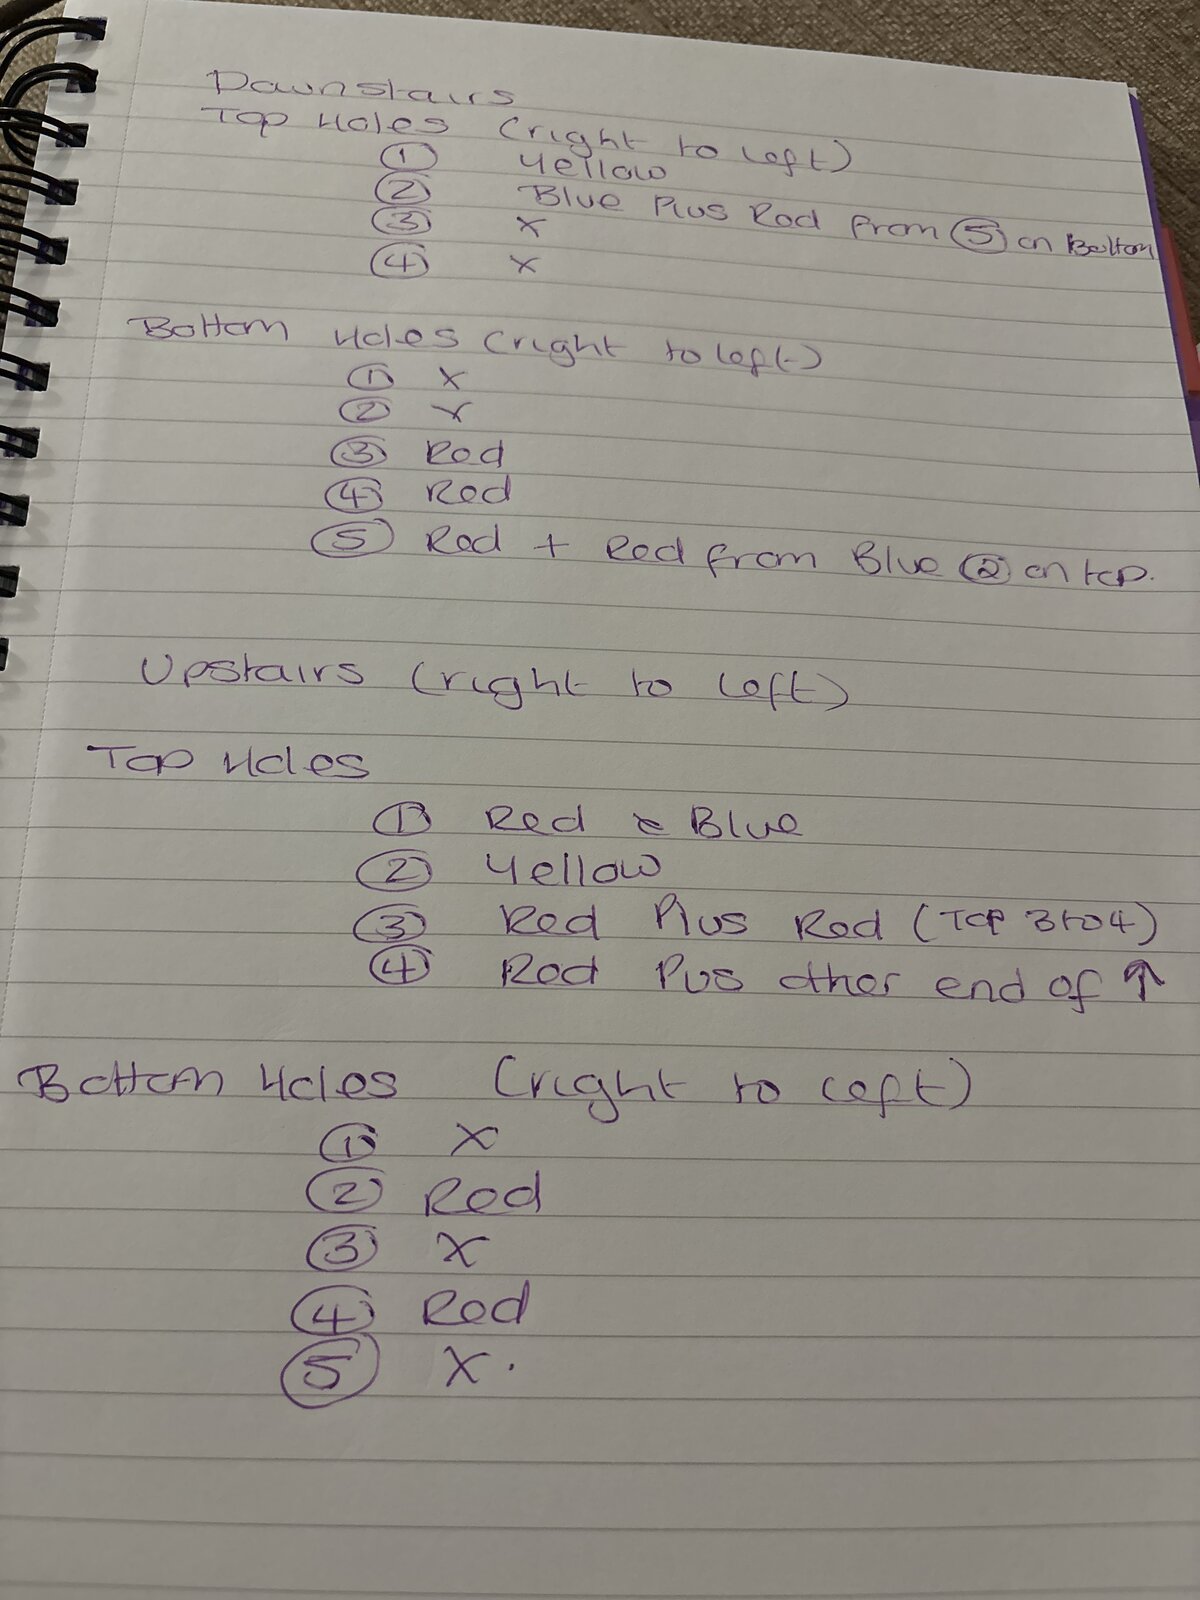 Downstairs
Top Holes (right to left)
① Yellow
② Blue Plus Red from ⑤ on Bottom
③ x
④ x
Bottom Holes (right to left)
① x
② x
③ Red
④ Red
⑤ Red + Red from Blue ② on top.
Upstairs (right to left)
Top Holes
① Red & Blue
② Yellow
③ Red Plus Red (Top 3 to 4)
④ Red Pus other end of ↑
Bottom Holes (right to left)
① X
② Red
③ X
④ Red
⑤ X.